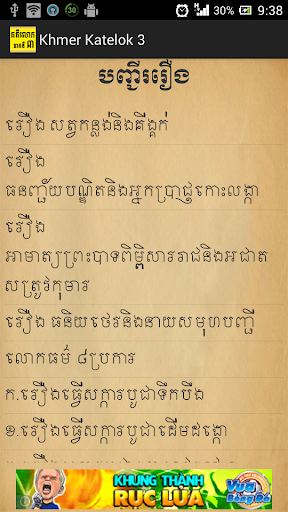 30
54%
9:38
គតិលោក
ភាគទី ៣
Khmer Katelok 3
បញ្ជីររឿង
រឿង សត្វកន្លង់និងគីង្គក់
រឿង
ធនញ្ជ័យបណ្ឌិតនិងអ្នកប្រាជ្ញកោះលង្កា
រឿង
អាមាត្យព្រះបាទពិម្ពិសាររាជនិងអជាត
សត្រូវកុមារ
រឿង ធនិយថេរនិងនាយសមុហបញ្ជី
លោកធម៌ ៨ប្រការ
ក.រឿងធ្វើសក្ការបូជាទឹកបឹង
ខ.រឿងធ្វើសក្ការបូជាដើមដង្កោ
KHUNG THÀNH
RỰC LỬA
Vua
Bóng Đá